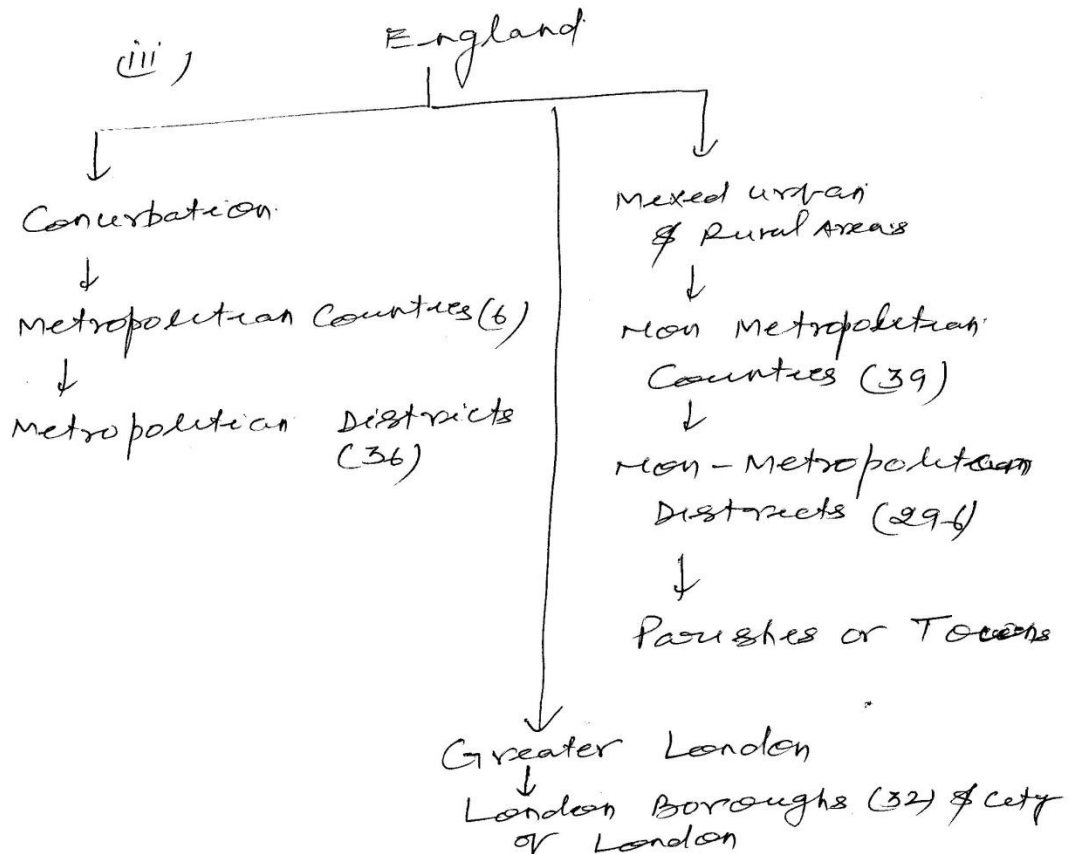 (iii)
England
Conurbation
↓
Metropolitian Counties (6)
↓
Metropolitian Districts
(36)
Mexed urban
& Rural Areas
↓
Non Metropolitian
Counties (39)
↓
Non-Metropolitan
Districts (296)
↓
Parishes or Towns
Greater London
↓
London Boroughs (32) & City
of London